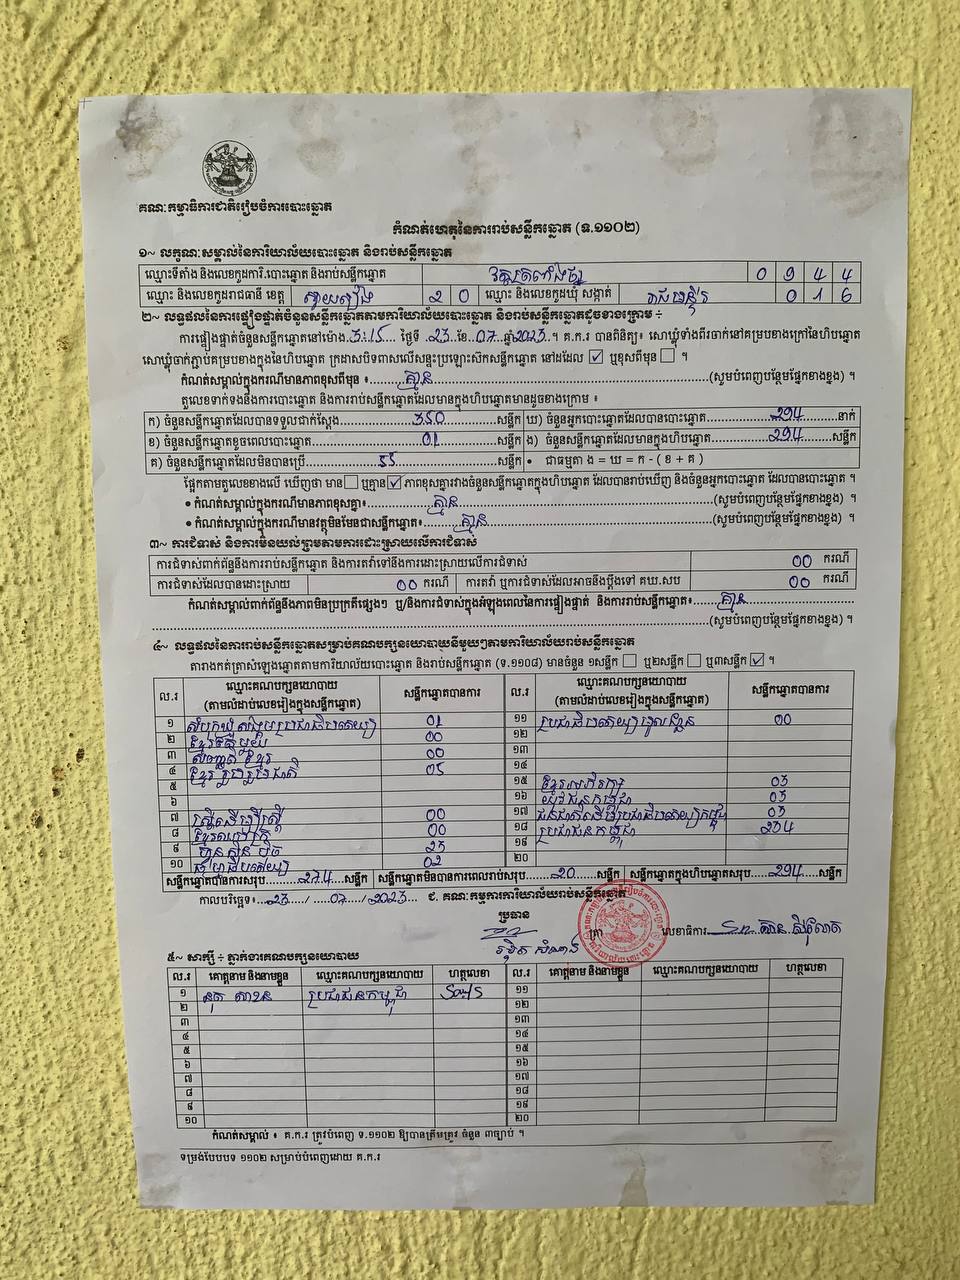 គណៈកម្មាធិការជាតិរៀបចំការបោះឆ្នោត
កំណត់ហេតុនៃការរាប់សន្លឹកឆ្នោត (ទ.១១០២)
១~ លក្ខណៈសម្គាល់នៃការិយាល័យបោះឆ្នោត និងរាប់សន្លឹកឆ្នោត
ឈ្មោះទីតាំង និងលេខកូដការិ.បោះឆ្នោត និងរាប់សន្លឹកឆ្នោត 0 9 4 4
ឈ្មោះ និងលេខកូដរាជធានី ខេត្ត ស្វាយរៀង 2 0 ឈ្មោះ និងលេខកូដឃុំ សង្កាត់ 0 1 6
២~ លទ្ធផលនៃការផ្ទៀងផ្ទាត់ចំនួនសន្លឹកឆ្នោតតាមការិយាល័យបោះឆ្នោត និងរាប់សន្លឹកឆ្នោតដូចខាងក្រោម ÷
ការផ្ទៀងផ្ទាត់ចំនួនសន្លឹកឆ្នោតនៅម៉ោង 3:15 ថ្ងៃទី 23 ខែ 07 ឆ្នាំ 2023 ។ គ.ក.រ បានពិនិត្យ៖ សោឃ្លុំទាំងពីរចាក់នៅគម្របខាងក្រៅនៃហិបឆ្នោត
សោឃ្លុំចាក់ភ្ជាប់គម្របខាងក្នុងនៃហិបឆ្នោត ក្រដាសបិទពាសលើសន្ទះប្រឡោះសិកសន្លឹកឆ្នោត នៅដដែល ☑ ឬខុសពីមុន ☐ ។
កំណត់សម្គាល់ក្នុងករណីមានភាពខុសពីមុន ៖ គ្មាន (សូមបំពេញបន្ថែមផ្នែកខាងខ្នង) ។
តួលេខទាក់ទងនឹងការបោះឆ្នោត និងការរាប់សន្លឹកឆ្នោតដែលមានក្នុងហិបឆ្នោតមានដូចខាងក្រោម ៖
ក) ចំនួនសន្លឹកឆ្នោតដែលបានទទួលជាក់ស្តែង 350 សន្លឹក ឃ) ចំនួនអ្នកបោះឆ្នោតដែលបានបោះឆ្នោត 294 នាក់
ខ) ចំនួនសន្លឹកឆ្នោតខូចពេលបោះឆ្នោត 01 សន្លឹក ង) ចំនួនសន្លឹកឆ្នោតដែលមានក្នុងហិបឆ្នោត 294 សន្លឹក
គ) ចំនួនសន្លឹកឆ្នោតដែលមិនបានប្រើ 55 សន្លឹក • ជាធម្មតា ង = ឃ = ក - ( ខ + គ )
ផ្អែកតាមតួលេខខាងលើ ឃើញថា មាន ☐ ឬគ្មាន ☑ ភាពខុសគ្នារវាងចំនួនសន្លឹកឆ្នោតក្នុងហិបឆ្នោត ដែលបានរាប់ឃើញ និងចំនួនអ្នកបោះឆ្នោត ដែលបានបោះឆ្នោត ។
• កំណត់សម្គាល់ក្នុងករណីមានភាពខុសគ្នា៖ គ្មាន (សូមបំពេញបន្ថែមផ្នែកខាងខ្នង) ។
• កំណត់សម្គាល់ក្នុងករណីមានវត្ថុមិនមែនជាសន្លឹកឆ្នោត៖ គ្មាន (សូមបំពេញបន្ថែមផ្នែកខាងខ្នង) ។
៣~ ការជំទាស់ និងការមិនយល់ព្រមតាមការដោះស្រាយលើការជំទាស់
ការជំទាស់ពាក់ព័ន្ធនឹងការរាប់សន្លឹកឆ្នោត និងការតវ៉ាទៅនឹងការដោះស្រាយលើការជំទាស់ 00 ករណី
ការជំទាស់ដែលបានដោះស្រាយ 00 ករណី ការតវ៉ា ឬការជំទាស់ដែលអាចនឹងប្តឹងទៅ គឃ.សប 00 ករណី
កំណត់សម្គាល់ពាក់ព័ន្ធនឹងភាពមិនប្រក្រតីផ្សេងៗ ឬ/និងការជំទាស់ក្នុងអំឡុងពេលនៃការផ្ទៀងផ្ទាត់ និងការរាប់សន្លឹកឆ្នោត៖ គ្មាន
(សូមបំពេញបន្ថែមផ្នែកខាងខ្នង) ។
៤~ លទ្ធផលនៃការរាប់សន្លឹកឆ្នោតសម្រាប់គណបក្សនយោបាយនីមួយៗតាមការិយាល័យរាប់សន្លឹកឆ្នោត
តារាងកត់ត្រាសំឡេងឆ្នោតតាមការិយាល័យបោះឆ្នោត និងរាប់សន្លឹកឆ្នោត (ទ.១១០៨) មានចំនួន ១សន្លឹក ☐ ឬ២សន្លឹក ☐ ឬ៣សន្លឹក ☑ ។
ល.រ ឈ្មោះគណបក្សនយោបាយ សន្លឹកឆ្នោតបានការ ល.រ ឈ្មោះគណបក្សនយោបាយ សន្លឹកឆ្នោតបានការ
(តាមលំដាប់លេខរៀងក្នុងសន្លឹកឆ្នោត) (តាមលំដាប់លេខរៀងក្នុងសន្លឹកឆ្នោត)
១ សំបុកឃ្មុំសង្គមប្រជាធិបតេយ្យ 01 ១១ ប្រជាធិបតេយ្យមូលដ្ឋាន 00
២ ខ្មែរតែមួយ 00 ១២
៣ សញ្ជាតិខ្មែរ 00 ១៣
៤ ខ្មែររួបរួមជាតិ 05 ១៤
៥ ១៥ ខ្មែរអភិរក្ស 03
៦ ១៦ យុវជនកម្ពុជា 03
៧ ស្ត្រីដើម្បីស្ត្រី 00 ១៧ ជនជាតិដើមប្រជាធិបតេយ្យកម្ពុជា 03
៨ 00 ១៨ ប្រជាជនកម្ពុជា 234
៩ ហ៊្វុនស៊ិនប៉ិច 23 ១៩
១០ ធម្មាធិបតេយ្យ 02 ២០
សន្លឹកឆ្នោតបានការសរុប 274 សន្លឹក សន្លឹកឆ្នោតមិនបានការពេលរាប់សរុប 20 សន្លឹក សន្លឹកឆ្នោតក្នុងហិបឆ្នោតសរុប 294 សន្លឹក
កាលបរិច្ឆេទ៖ 23 / 07 / 2023 ជ. គណៈកម្មការការិយាល័យរាប់សន្លឹកឆ្នោត
ប្រធាន
ត្រា លេខាធិការ
៥~ សាក្សី ÷ ភ្នាក់ងារគណបក្សនយោបាយ
ល.រ គោត្តនាម និងនាមខ្លួន ឈ្មោះគណបក្សនយោបាយ ហត្ថលេខា ល.រ គោត្តនាម និងនាមខ្លួន ឈ្មោះគណបក្សនយោបាយ ហត្ថលេខា
១ ប្រជាជនកម្ពុជា ១១
២ ១២
៣ ១៣
៤ ១៤
៥ ១៥
៦ ១៦
៧ ១៧
៨ ១៨
៩ ១៩
១០ ២០
កំណត់សម្គាល់ ៖ គ.ក.រ ត្រូវបំពេញ ទ.១១០២ ឱ្យបានត្រឹមត្រូវ ចំនួន ៣ច្បាប់ ។
ទម្រង់បែបបទ ១១០២ សម្រាប់បំពេញដោយ គ.ក.រ